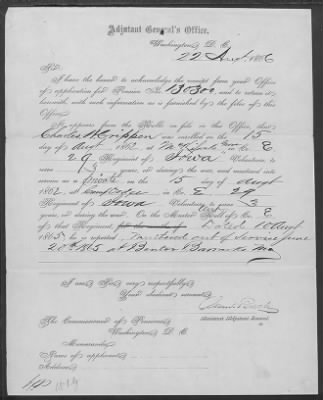 Adjutant General's Office,
Washington, D. C.
22 Augt., 1866
Sir:
I have the honor to acknowledge the receipt from your Office
of application for Pension No. 130300, and to return it
herewith with such information as is furnished by the files of this
Office.
It appears from the Rolls on file in this Office, that
Charles H. was enrolled on the 15
day of Augt, 1862, at in Co. E
29 Regiment of Iowa Volunteers, to serve
years, or during the war, and mustered into
service as a Private on the 15 day of Augt
1862, at in Co. E 29
Regiment of Iowa Volunteers, to serve 3
years, or during the war. On the Muster Roll of Co. E
of that Regiment, Dated 10 Augt
1865, he is reported Mustered out of service June
20th 1865 at Benton Barracks Mo
I am, Sir, very respectfully,
Your obedient servant,
Assistant Adjutant General.
The Commissioner of Pensions,
Washington, D. C.
Memoranda:
Name of applicant,
Address,